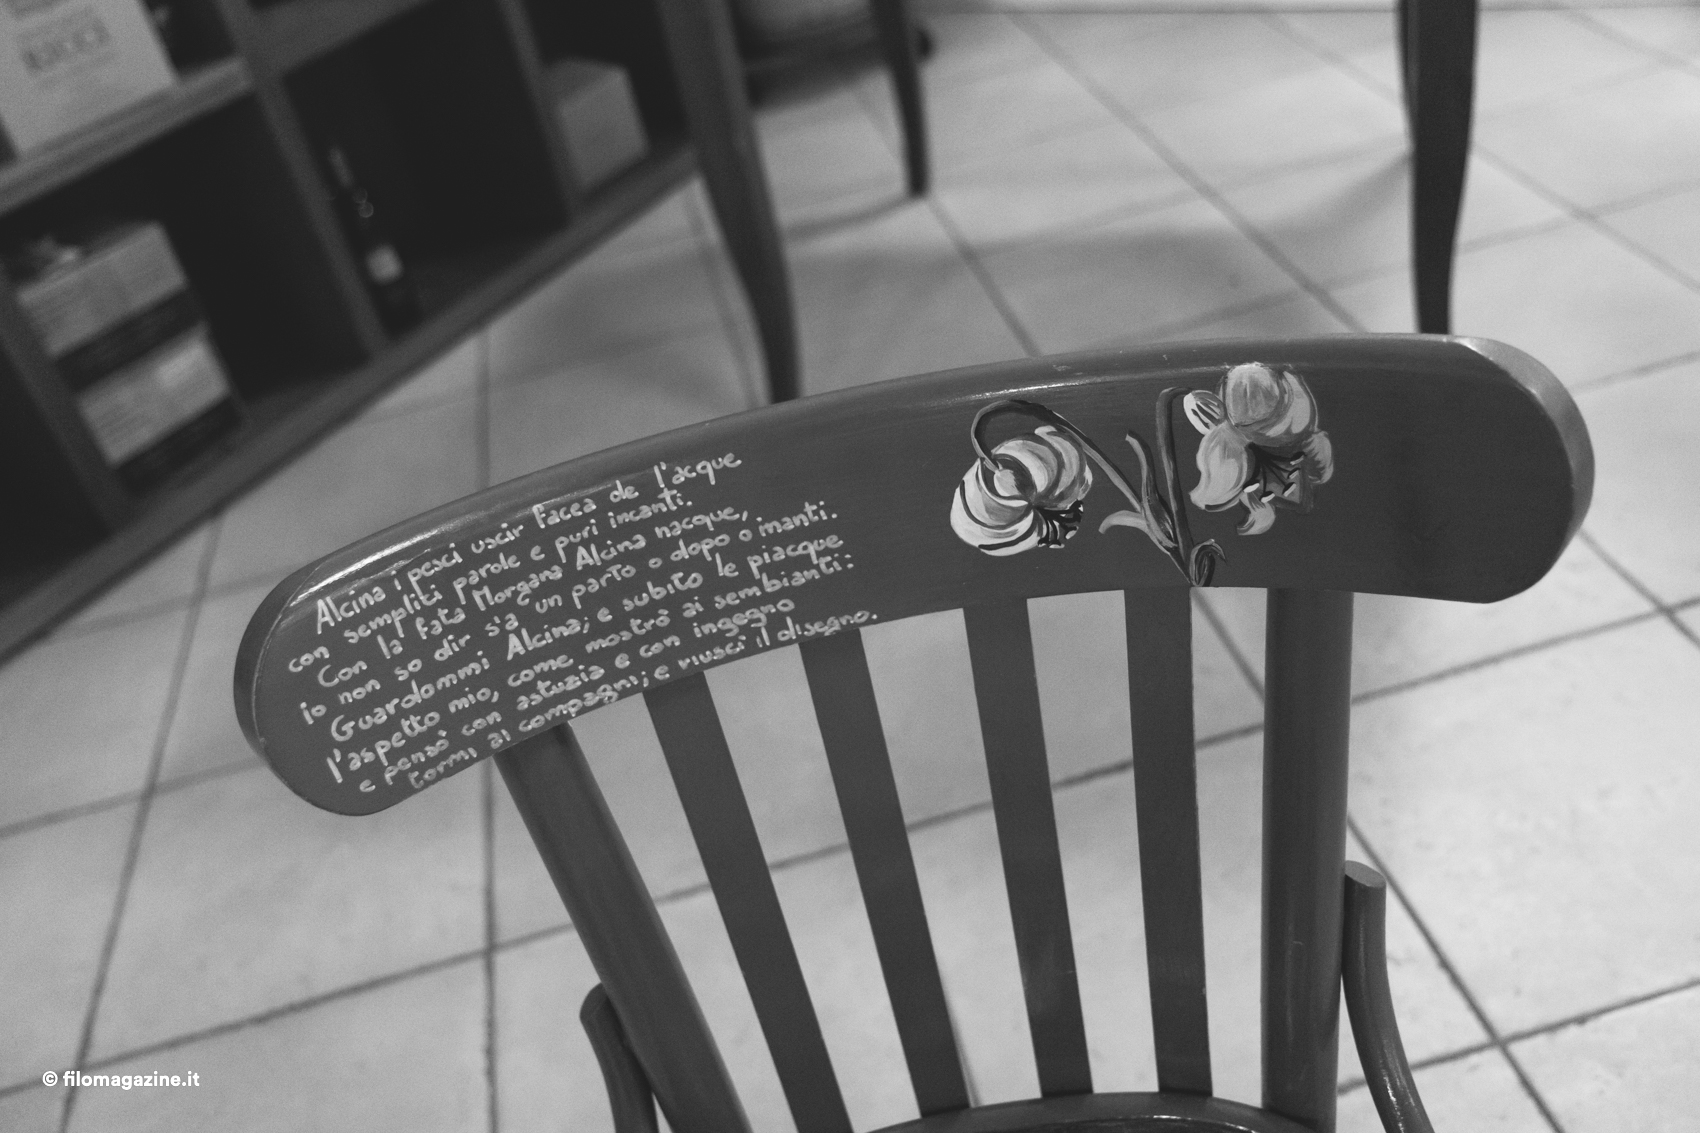 Alcina i pesci uscir facea de l'acque
con sempliti parole e puri incanti.
Con la fata Morgana Alcina nacque,
io non so dir s'a un parto o dopo o inanti.
Guardommi Alcina; e subito le piacque
l'aspetto mio, come mostrò ai sembianti:
e pensò con astuzia e con ingegno
tormi ai compagni; e riuscì il disegno.
© filomagazine.it